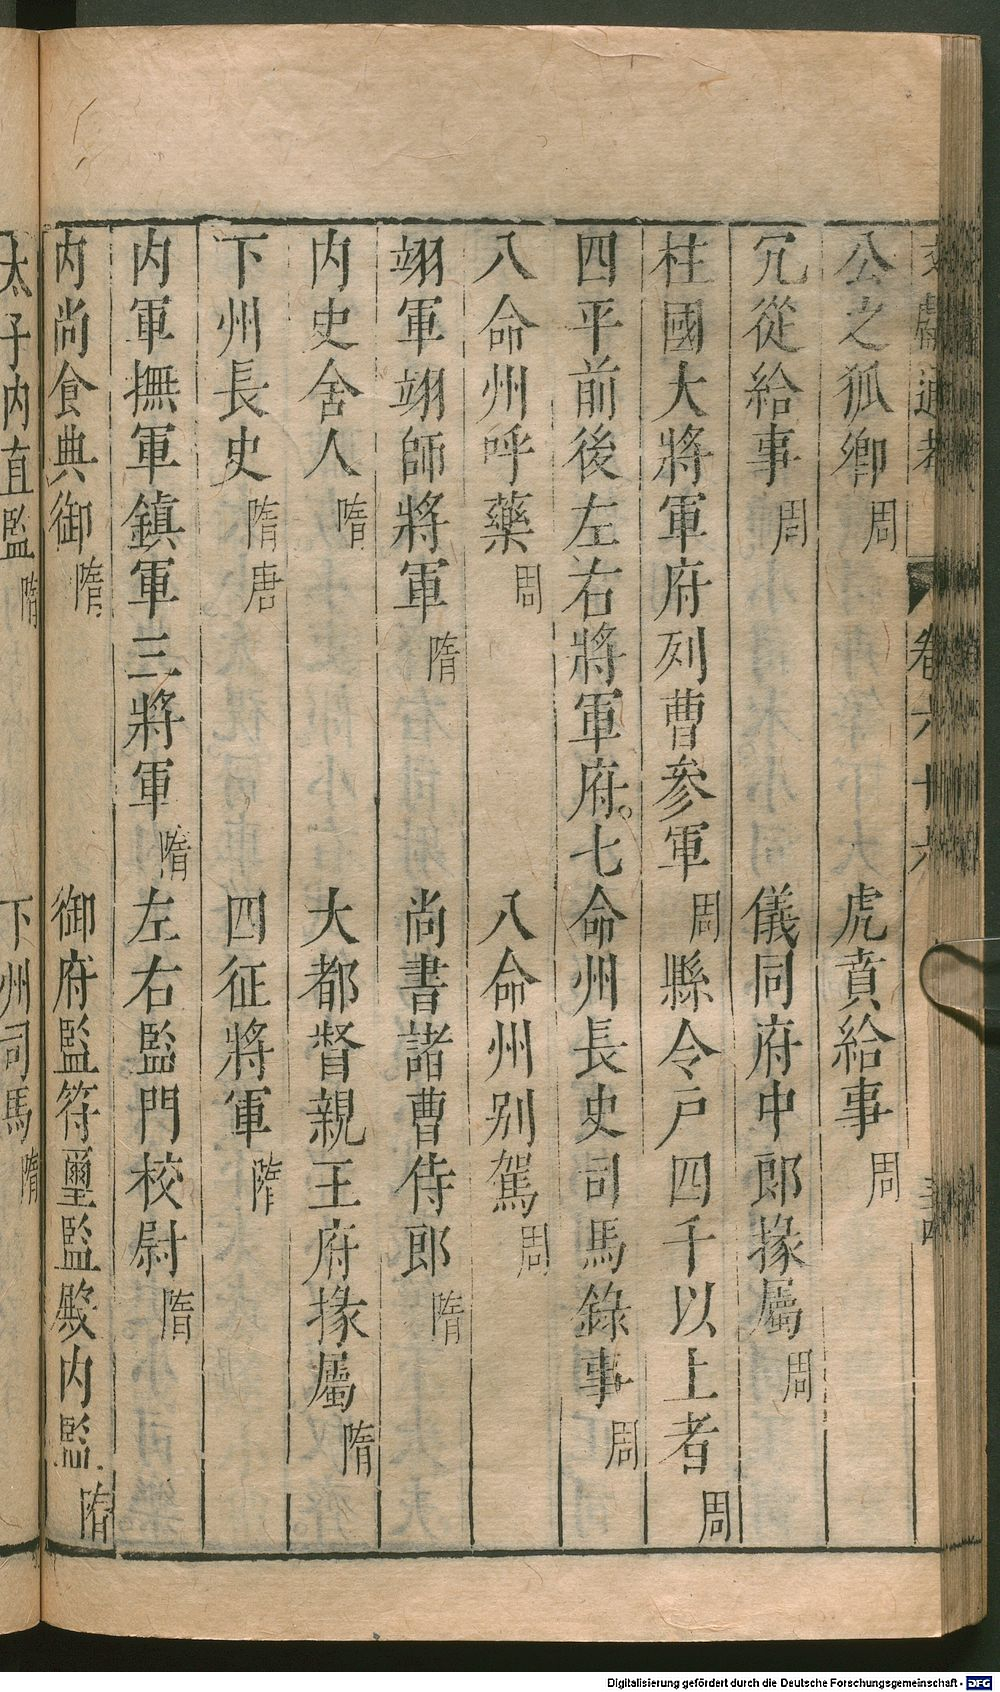 文獻通考 卷六十六 三四
公之狐卿周 虎賁給事周
冗從給事周 儀同府中郎掾屬周
柱國大將軍府列曹參軍周縣令戶四千以上者周
四平前後左右將軍府。七命州長史司馬錄事周
八命州呼藥周 八命州別駕周
翊軍翊師將軍隋 尚書諸曹侍郎隋
內史舍人隋 大都督親王府掾屬隋
下州長史隋唐 四征將軍隋
內軍撫軍鎮軍三將軍隋左右監門校尉隋
內尚食典御隋 御府監符璽監殿內監隋
太子內直監隋 下州司馬隋
Digitalisierung gefördert durch die Deutsche Forschungsgemeinschaft - DFG